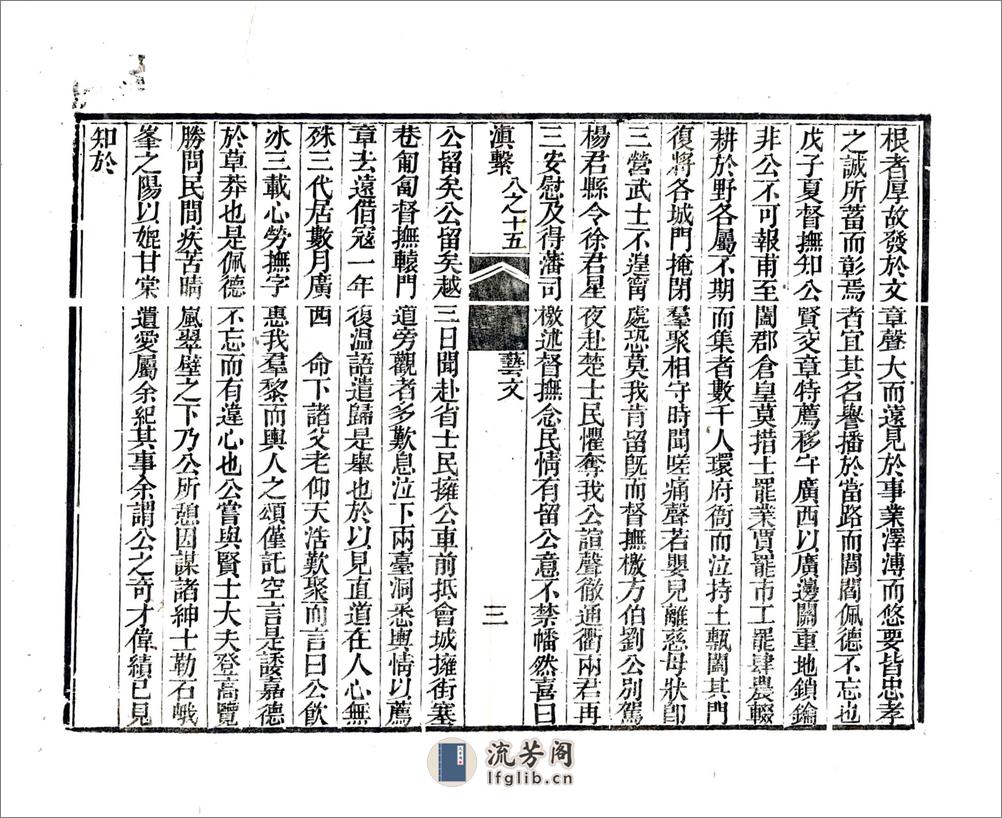 根者厚故發於文章聲大而遠見於事業澤溥而悠要皆忠孝
之誠所蓄而彰焉者宜其名譽播於當路而閭閻佩德不忘也
戊子夏督撫知公賢交章特薦移守廣西以廣邊關重地鎖鑰
非公不可報甫至闔郡倉皇莫措士罷業賈罷市工罷肆農輟
耕於野各屬不期而集者數千人環府衙而泣持土甎闔其門
復將各城門掩閉羣聚相守時聞嗟痛聲若嬰兒離慈母狀卽
三營武士不遑寧處恐莫我肯留旣而督撫檄方伯劉公別駕
楊君縣令徐君星夜赴楚士民懼奪我公諠聲徹通衢兩君再
三安慰及得藩司檄述督撫念民情有留公意不禁幡然喜曰
滇繫 八之十五 藝文 三
公留矣公留矣越三日聞赴省士民擁公車前抵會城擁街塞
巷匍匐督撫轅門道旁觀者多歎息泣下兩臺洞悉輿情以薦
章去遠借寇一年復温語遣歸是舉也於以見直道在人心無
殊三代居數月廣西 命下諸父老仰天浩歎聚而言曰公飲
冰三載心勞撫字惠我羣黎而輿人之頌僅託空言是諉嘉德
於草莽也是佩德不忘而有違心也公嘗與賢士大夫登高覽
勝問民間疾苦晴嵐翠壁之下乃公所憩因謀諸紳士勒石峨
峯之陽以媲甘棠遺愛屬余紀其事余謂公之奇才偉績已見
知於
流芳阁
lfglib.cn